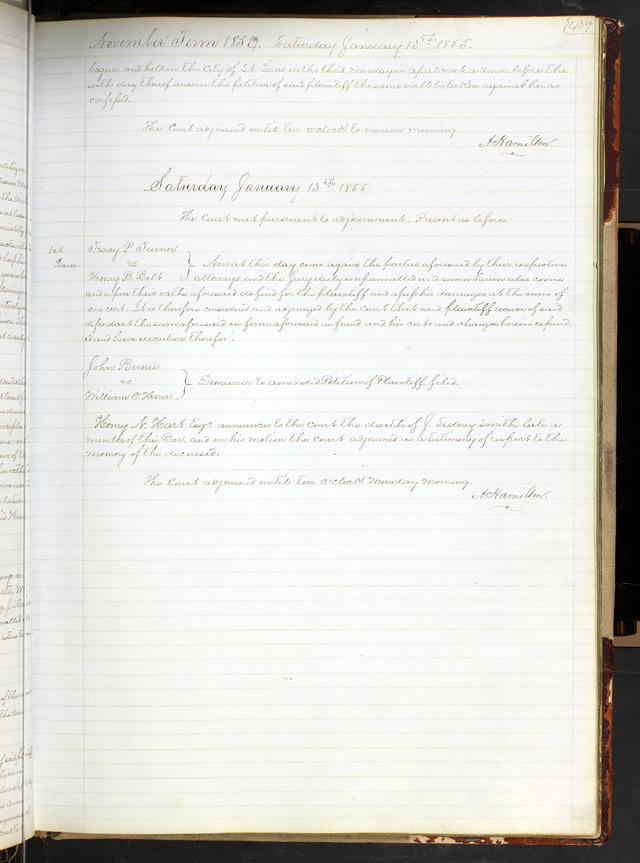 439
November Term 1854. Saturday January 13th 1855.
begun and held in the City of St. Louis on the third Monday in April next, and on or before the
sixth day thereof answer the petition of said plaintiff the same will be taken against her as
confessed.
The Court adjourned until ten o'clock to morrow morning.
A Hamilton.
Saturday January 13th 1855
The Court met pursuant to adjournment. Present as before.
Tracy P. Turner
vs.
Henry B. Belt
Now at this day come again the parties aforesaid by their respective
attorneys, and the Jury duly empannelled and sworn herein also come
and upon their oaths aforesaid do find for the plaintiff and assess his damages at the sum of
one cent. It is therefore considered and adjudged by the Court that said plaintiff recover of said
defendant the sum aforesaid in form aforesaid as found and his costs and charges herein expend
ed and have execution therefor.
John
vs.
William O'Hara
Demurrer to amended Petition of Plaintiff filed
Henry N. Hart Esqr. announces to the Court the death of J. Sidney Smith late a
member of this Bar, and on his motion the court adjourned as a testimony of respect to the
memory of the deceased.
The Court adjourned until ten o'clock Monday morning.
A Hamilton.